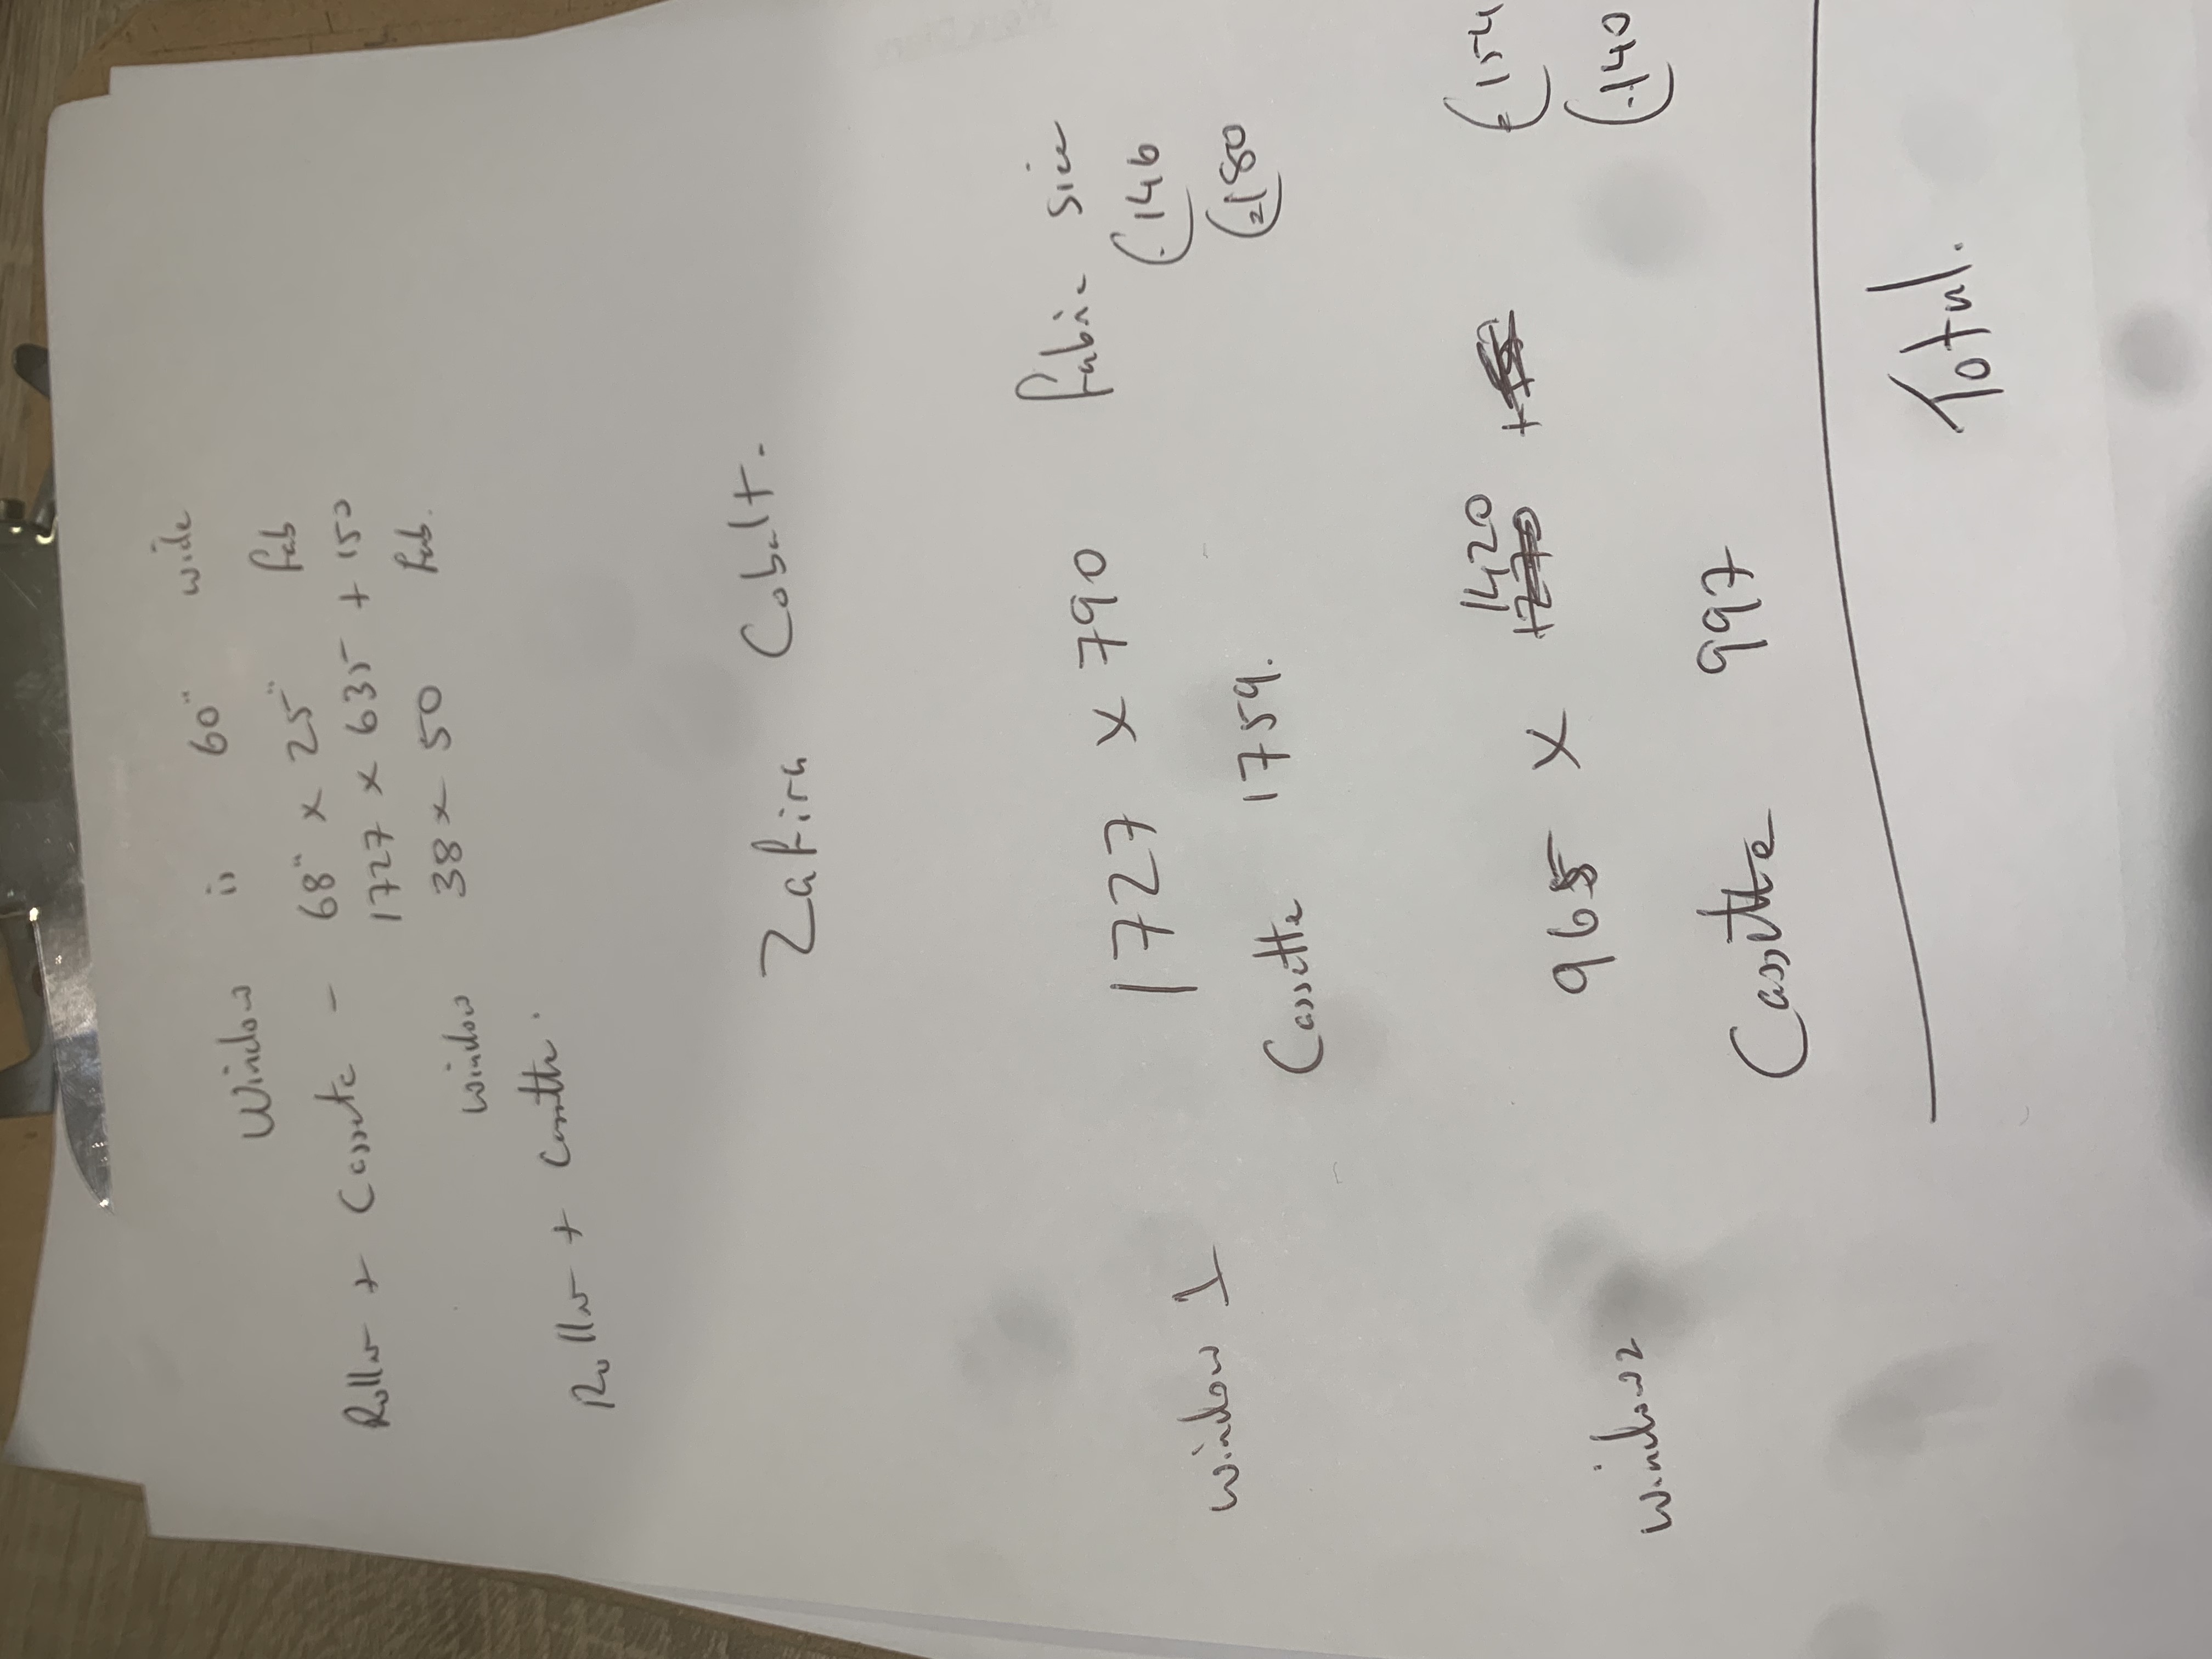 Window is 60" wide
Roller + Cassette - 68" x 25" fab
1727 x 635 + 150
window 38 x 50 fab.
Roller + Cassette.
Zafira Cobalt.
fabric size
Window 1 1727 x 790 (.146
Cassette 1759. (=180
1420 (=154
Window 2 965 x + (.140
Cassette 997
Total.